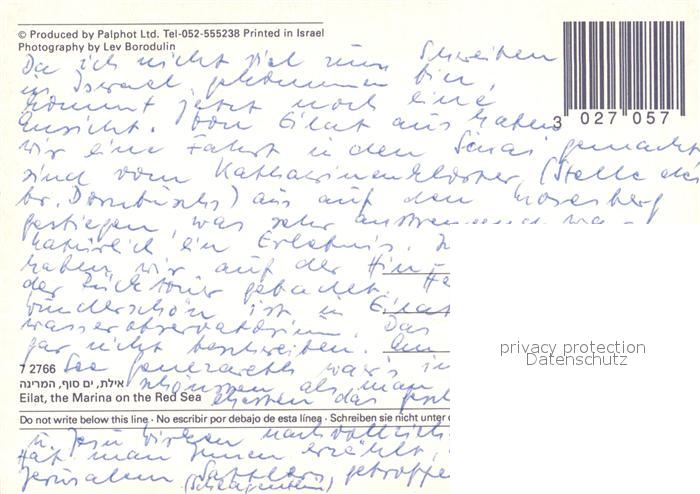 © Produced by Palphot Ltd. Tel-052-555238 Printed in Israel
Photography by Lev Borodulin
Da ich nicht viel zum Schreiben
in Israel gekommen bin,
kommt jetzt noch eine
Ansicht. Von Eilat aus haben
3 027 057
wir eine Fahrt in den Sinai gemacht
sind vom Katharinenkloster, (Stelle des
br. Dornbuschs) aus auf den Mosesberg
gestiegen, was sehr anstrengend wa-
natürlich ein Erlebnis.
haben wir auf der Hin-
der Rücktour gebadet.
wunderschön ist in Eilat
wasserobservatorium. Das
gar nicht beschreiben. Am
privacy protection
Datenschutz
7 2766
See Genezareth war's
אילת, ים סוף, המרינה
als man
Eilat, the Marina on the Red Sea
das
Do not write below this line · No escribir por debajo de esta línea · Schreiben sie nicht unter
u. Jesu Wirken nachvollzieh
Hat man Ihnen erzählt,
Jerusalem Sattlers getroffe